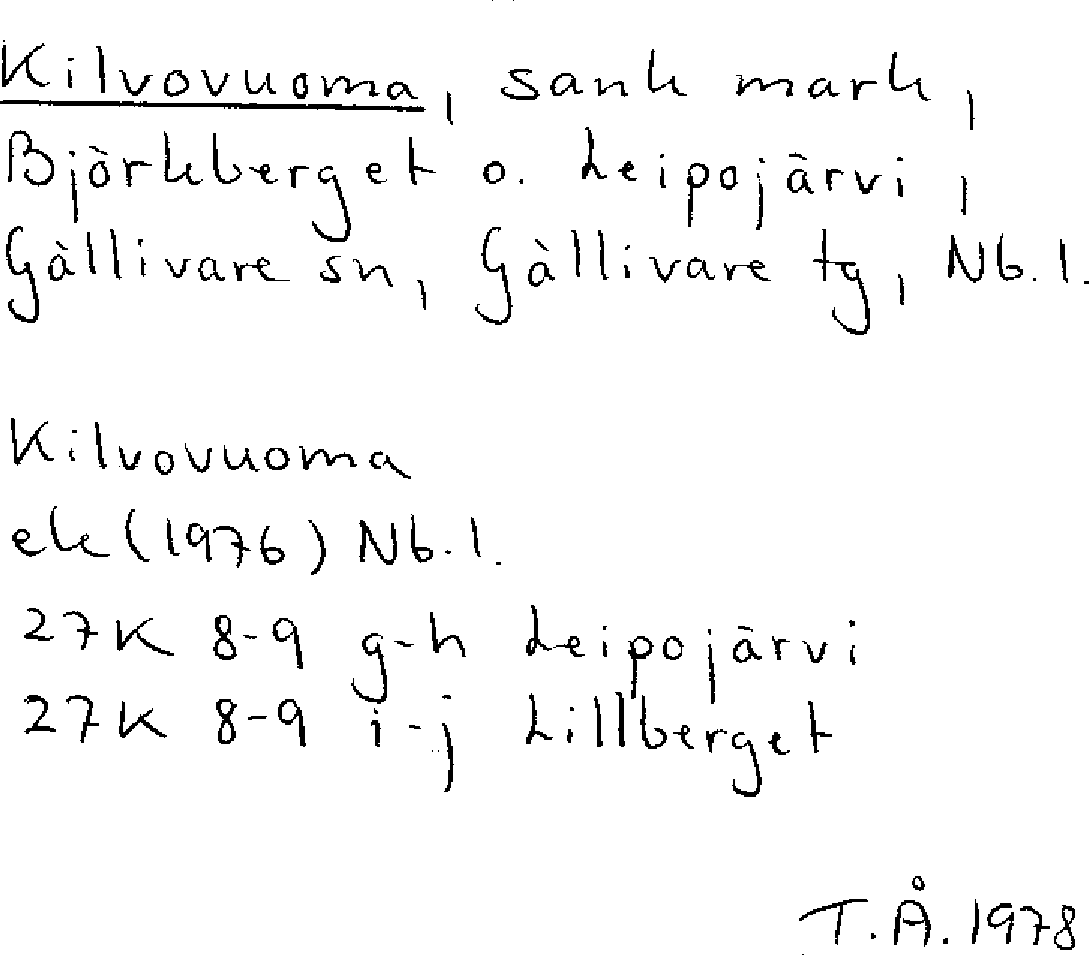 Kilvovuoma, sank mark,
Björkberget o. Leipojärvi,
Gällivare sn, Gällivare tg, Nb.l.
Kilvovuoma
ek (1976) Nb.l.
27K 8-9 g-h Leipojärvi
27K 8-9 i-j Lillberget
T.Å. 1978